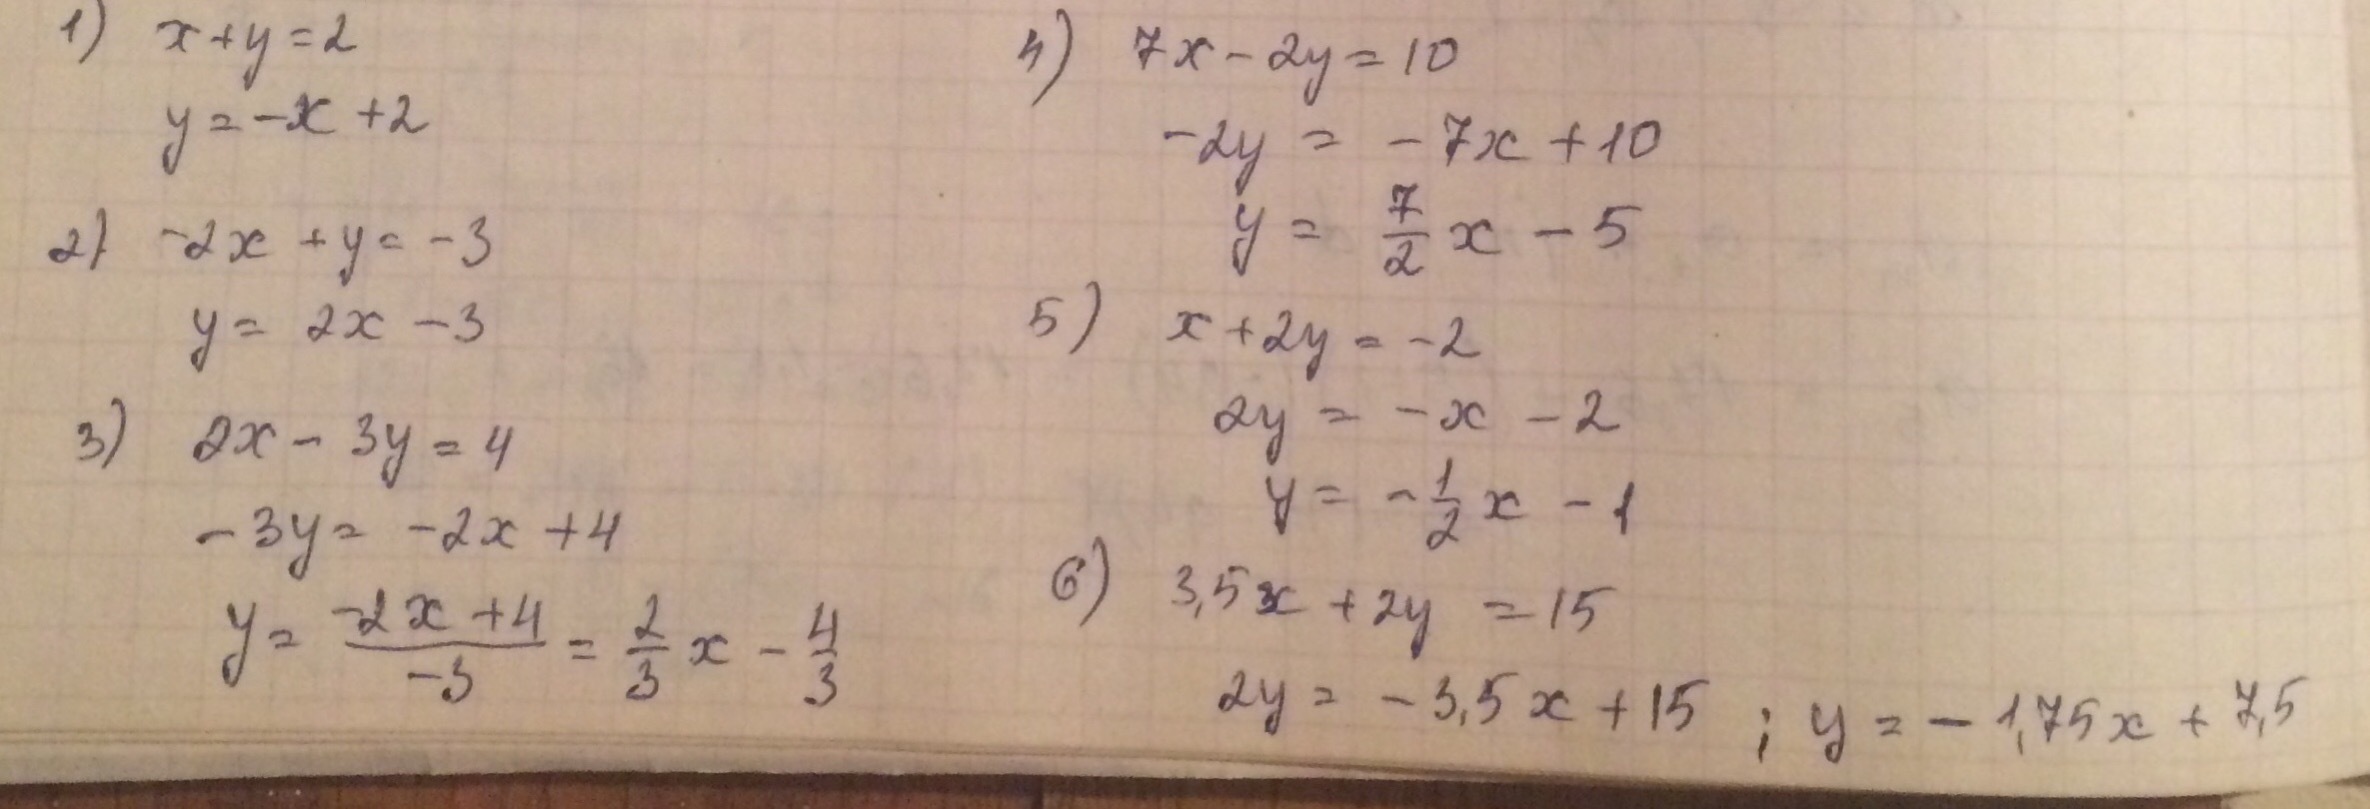 1) x + y = 2
y = -x + 2
2) -2x + y = -3
y = 2x - 3
3) 2x - 3y = 4
-3y = -2x + 4
y = \frac{-2x + 4}{-3} = \frac{2}{3}x - \frac{4}{3}
4) 7x - 2y = 10
-2y = -7x + 10
y = \frac{7}{2}x - 5
5) x + 2y = -2
2y = -x - 2
y = -\frac{1}{2}x - 1
6) 3,5x + 2y = 15
2y = -3,5x + 15 ; y = -1,75x + 7,5